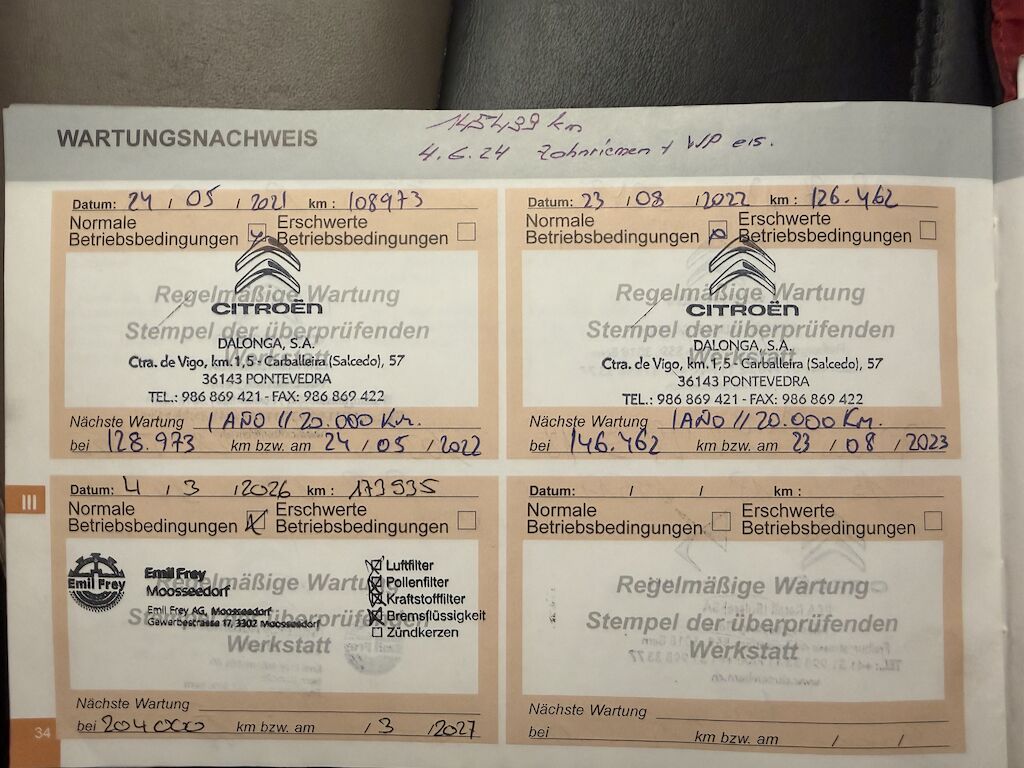 WARTUNGSNACHWEIS
145499 km
4.6.24 Zahnriemen + WP ers.
Datum: 24 / 05 / 2021 km : 108973
Normale Betriebsbedingungen
Erschwerte Betriebsbedingungen
Regelmäßige Wartung
CITROËN
Stempel der überprüfenden
Werkstatt
DALONGA, S.A.
Ctra. de Vigo, km.1,5 - Carballeira (Salcedo), 57
36143 PONTEVEDRA
TEL.: 986 869 421 - FAX: 986 869 422
Nächste Wartung 1 AÑO // 20.000 Km.
bei 128.973 km bzw. am 24 / 05 / 2022
Datum: 23 / 08 / 2022 km : 126.462
Normale Betriebsbedingungen
Erschwerte Betriebsbedingungen
Regelmäßige Wartung
CITROËN
Stempel der überprüfenden
Werkstatt
DALONGA, S.A.
Ctra. de Vigo, km.1,5 - Carballeira (Salcedo), 57
36143 PONTEVEDRA
TEL.: 986 869 421 - FAX: 986 869 422
Nächste Wartung 1 AÑO // 20.000 Km.
bei 146.462 km bzw. am 23 / 08 / 2023
III
Datum: 4 / 3 / 2026 km : 173935
Normale Betriebsbedingungen
Erschwerte Betriebsbedingungen
Emil Frey
Emil Frey
Moosseedorf
Emil Frey AG, Moosseedorf
Gewerbestrasse 17, 3302 Moosseedorf
Regelmäßige Wartung
Stempel der überprüfenden
Werkstatt
Luftfilter
Pollenfilter
Kraftstofffilter
Bremsflüssigkeit
Zündkerzen
Nächste Wartung
bei 204000 km bzw. am / 3 / 2027
Datum: / / km :
Normale Betriebsbedingungen
Erschwerte Betriebsbedingungen
Regelmäßige Wartung
Stempel der überprüfenden
Werkstatt
Nächste Wartung
bei km bzw. am / /
34